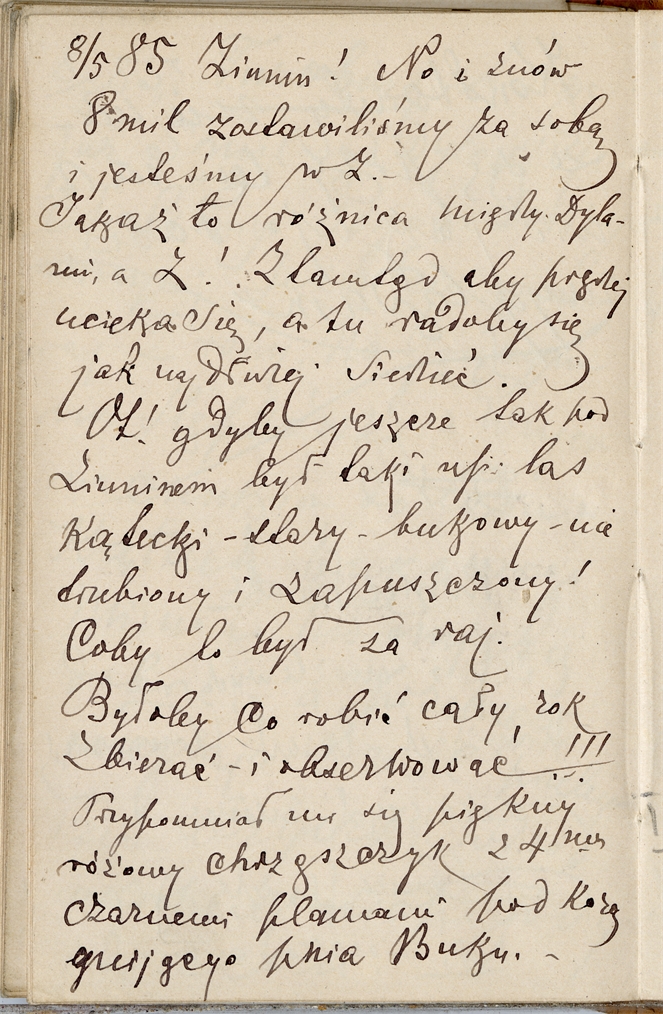 8/5 85 Zimin! No i znów
8 mil zostawiliśmy za sobą
i jesteśmy w Z.-
Jakaż to różnica między Dyla-
mi, a Z! Ztamtąd aby prędzej
ucieka się, a tu radoby się
jak najdłużej siedzieć.
Ot! gdyby jeszcze tak pod
Ziminem był taki np. las
Kątecki - stary - bukowy - nie
trubiony i zapuszczony!
Coby to był za raj.
Byłoby co robić cały rok
Zbierać - i obserwować !!!
Przypomniał mi się piękny
różowy chrząszczyk z 4ma
czarnemi plamami pod korą
gnijącego pnia Buku. -